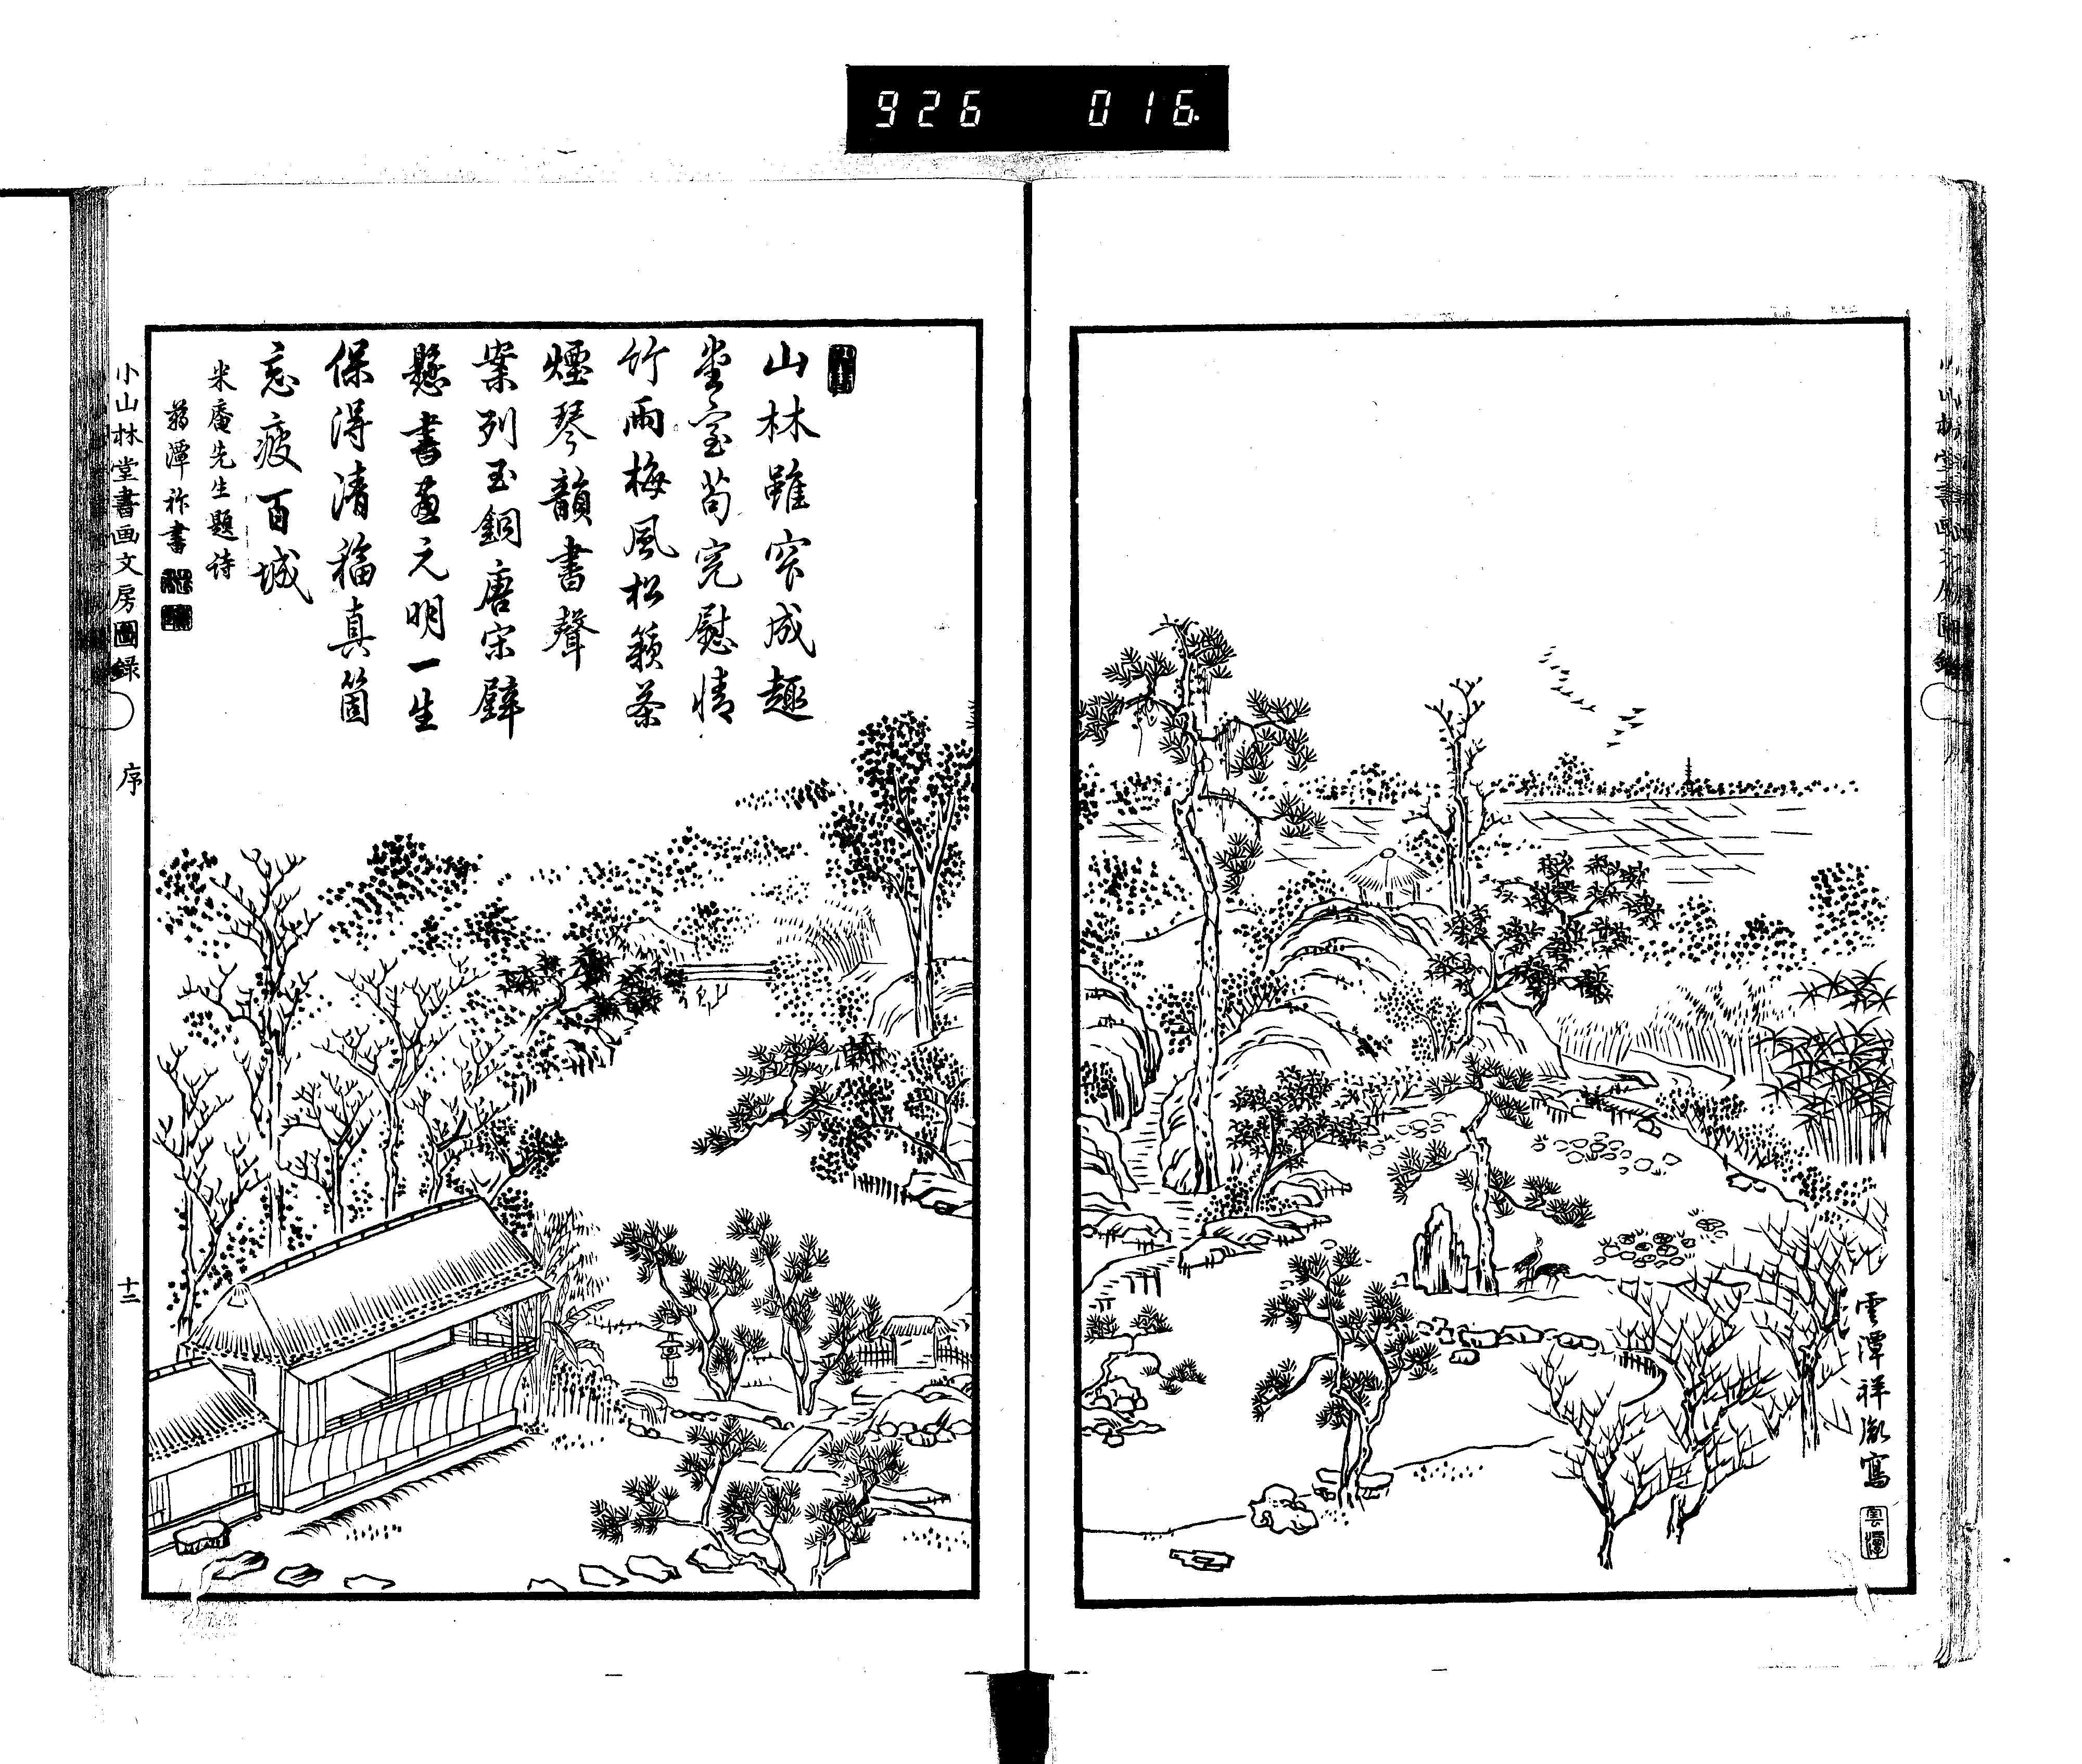 926 016
雲潭祥胤寫
雲潭
山林雖窄成趣
堂室苟完慰情
竹雨梅風松籟茶
煙琴韻書聲
案列玉銅唐宋壁
懸書畫元明一生
保得清福真箇
忘疲百城
米庵先生題詩
蒋潭祚書
小山林堂書画文房圖録
序
十二